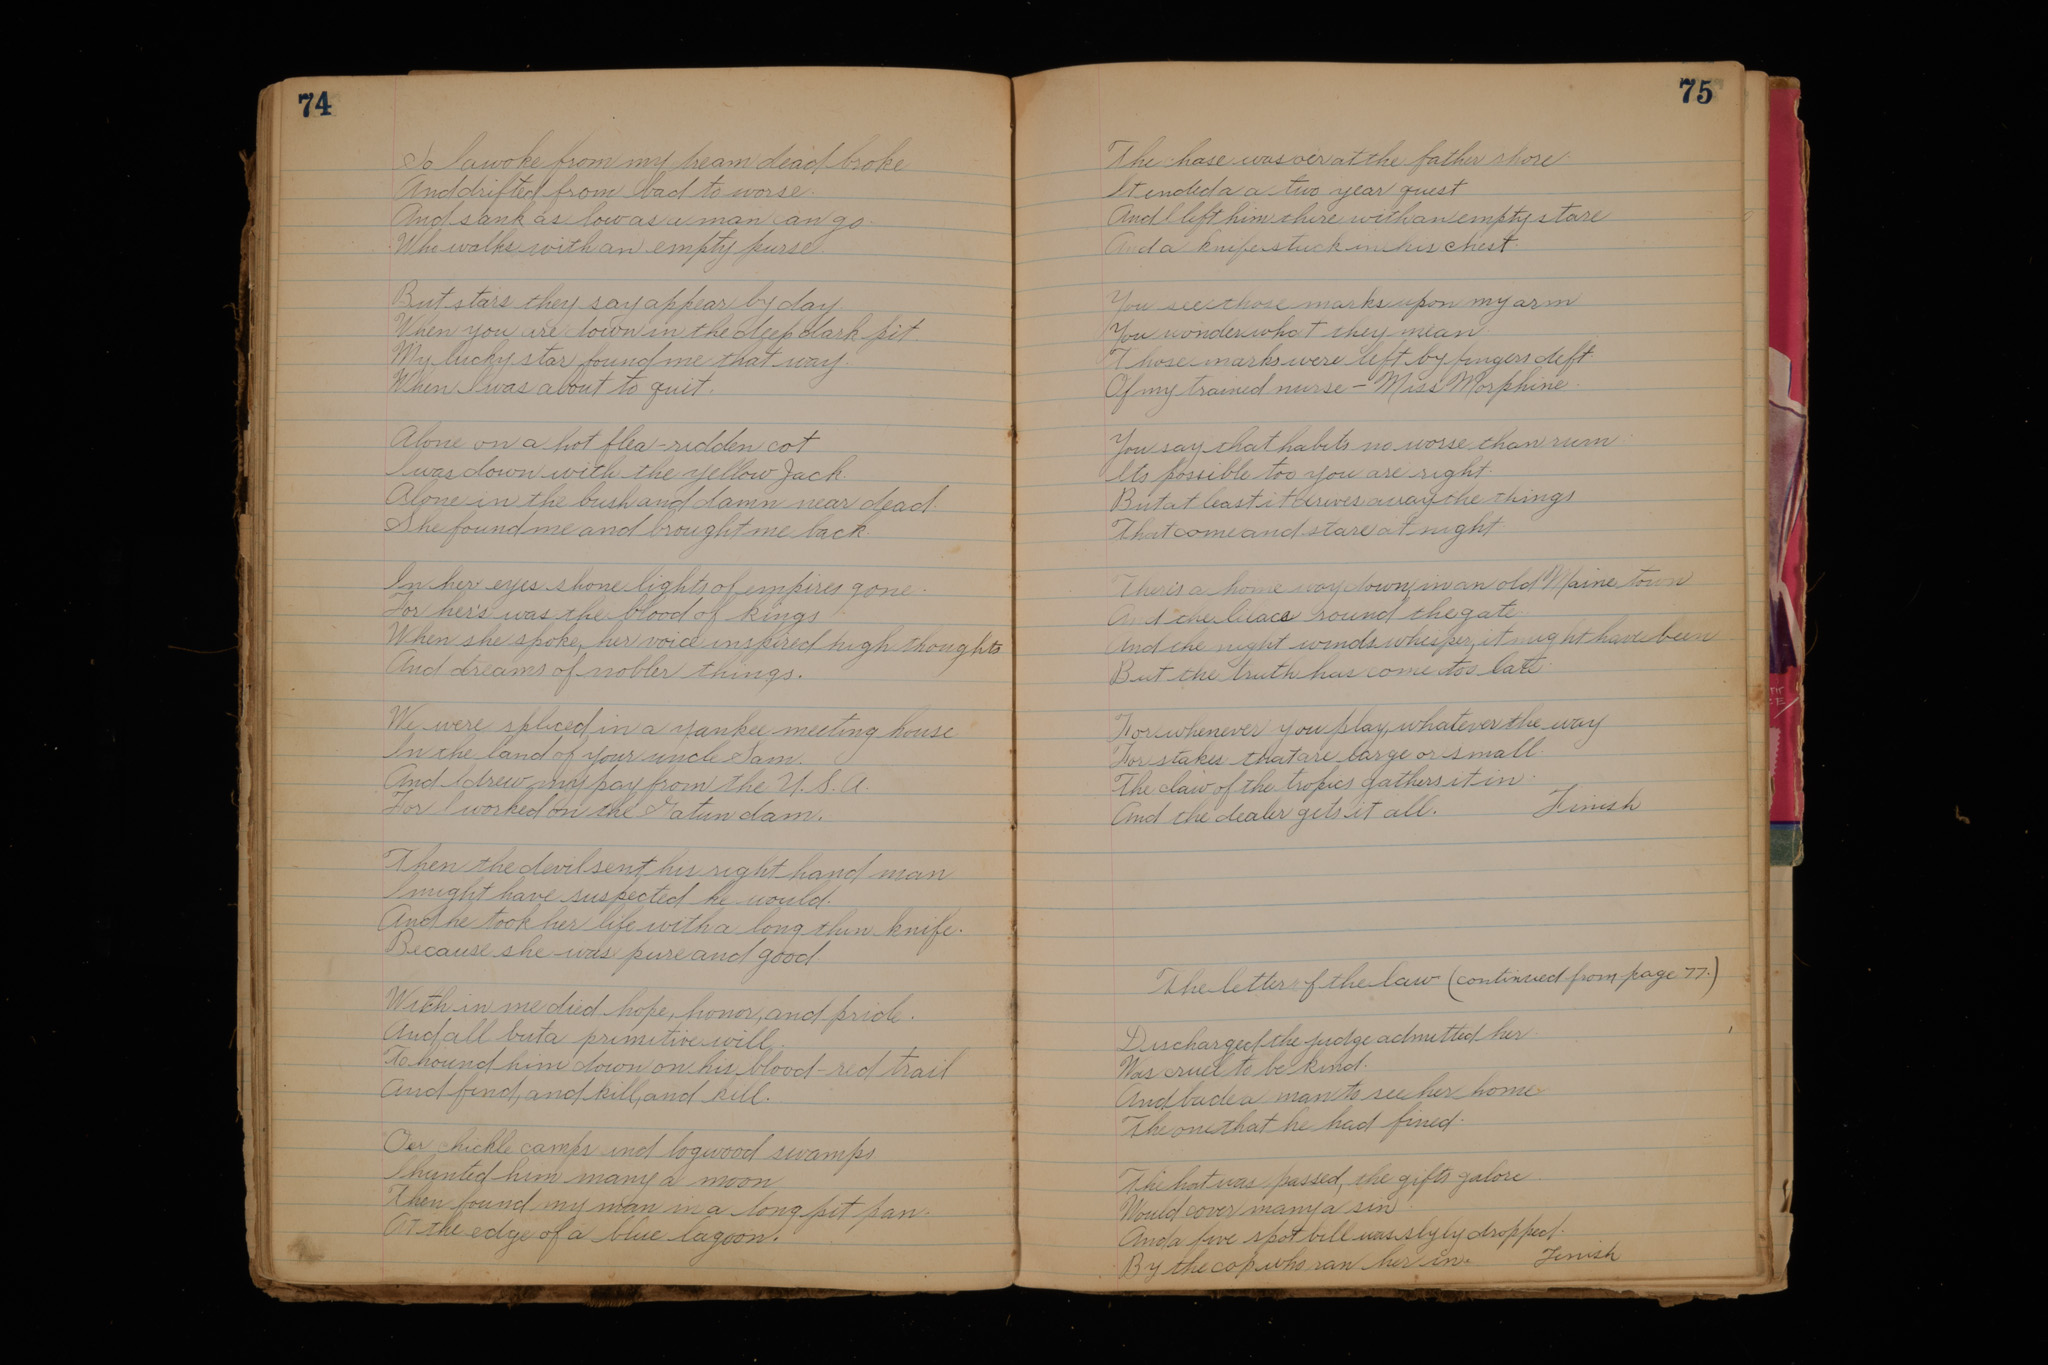 74
So I awoke from my dream dead broke
And drifted from bad to worse.
And sank as low as a man can go.
Who walks with an empty purse.
But stars they say appear by day
When you are down in the deep dark pit.
My lucky star found me that way.
When I was about to quit.
Alone on a hot flea-ridden cot
I was down with the yellow Jack.
Alone in the bush and damn near dead.
She found me and brought me back.
In her eyes shone lights of empires gone.
For her's was the blood of kings
When she spoke, her voice inspired high thoughts
And dreams of nobler things.
We were spliced in a yankee meeting house
In the land of your uncle Sam.
And I drew my pay from the U.S.A.
For I worked on the Gatun dam.
Then the devil sent his right hand man
I might have suspected he would.
And he took her life with a long thin knife.
Because she was pure and good
With in me died hope, honor, and pride.
And all but a primitive will.
To hound him down on his blood-red trail
And find, and kill, and kill.
Oer chickle camps and logwood swamps
I hunted him many a moon
Then found my man in a long pit pan.
At the edge of a blue lagoon.
75
The chase was oer at the father shore.
It ended a a two year quest
And I left him there with an empty stare
And a knife stuck in his chest.
You see those marks upon my arm
You wonder what they mean.
Those marks were left by fingers deft
Of my trained nurse - Miss Morphine.
You say that habits no worse than rum
Its possible too you are right.
But at least it drives away the things
That come and stare at night.
There's a home way down in an old Maine town
And the lilacs round the gate
And the night winds whisper, it might have been
But the truth has come too late
For whenever you play, whatever the way
For stakes that are large or small.
The claw of the tropics gathers it in.
And the dealer gets it all. Finish
The letter of the law (continued from page 77.)
Discharged the judge admitted her
Was cruel to be kind.
And bade a man to see her home
The one that he had fined.
The hat was passed, the gifts galore
Would cover many a sin
And a five spot bill was slyly dropped.
By the cop who ran her in. Finish